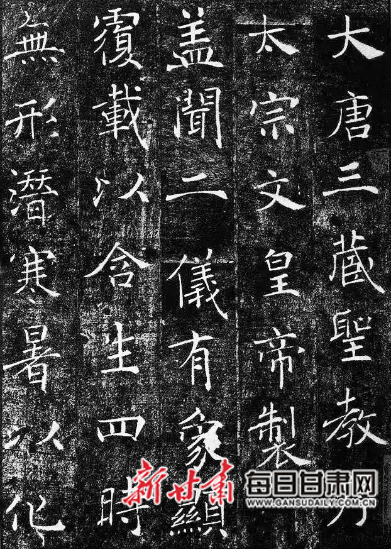 大唐三藏聖教
太宗文皇帝製
盖聞二儀有象顯
覆載以含生四時
無形潛寒暑以化
新甘肃
每日甘肃网
WWW.GANSUDAILY.COM.CN